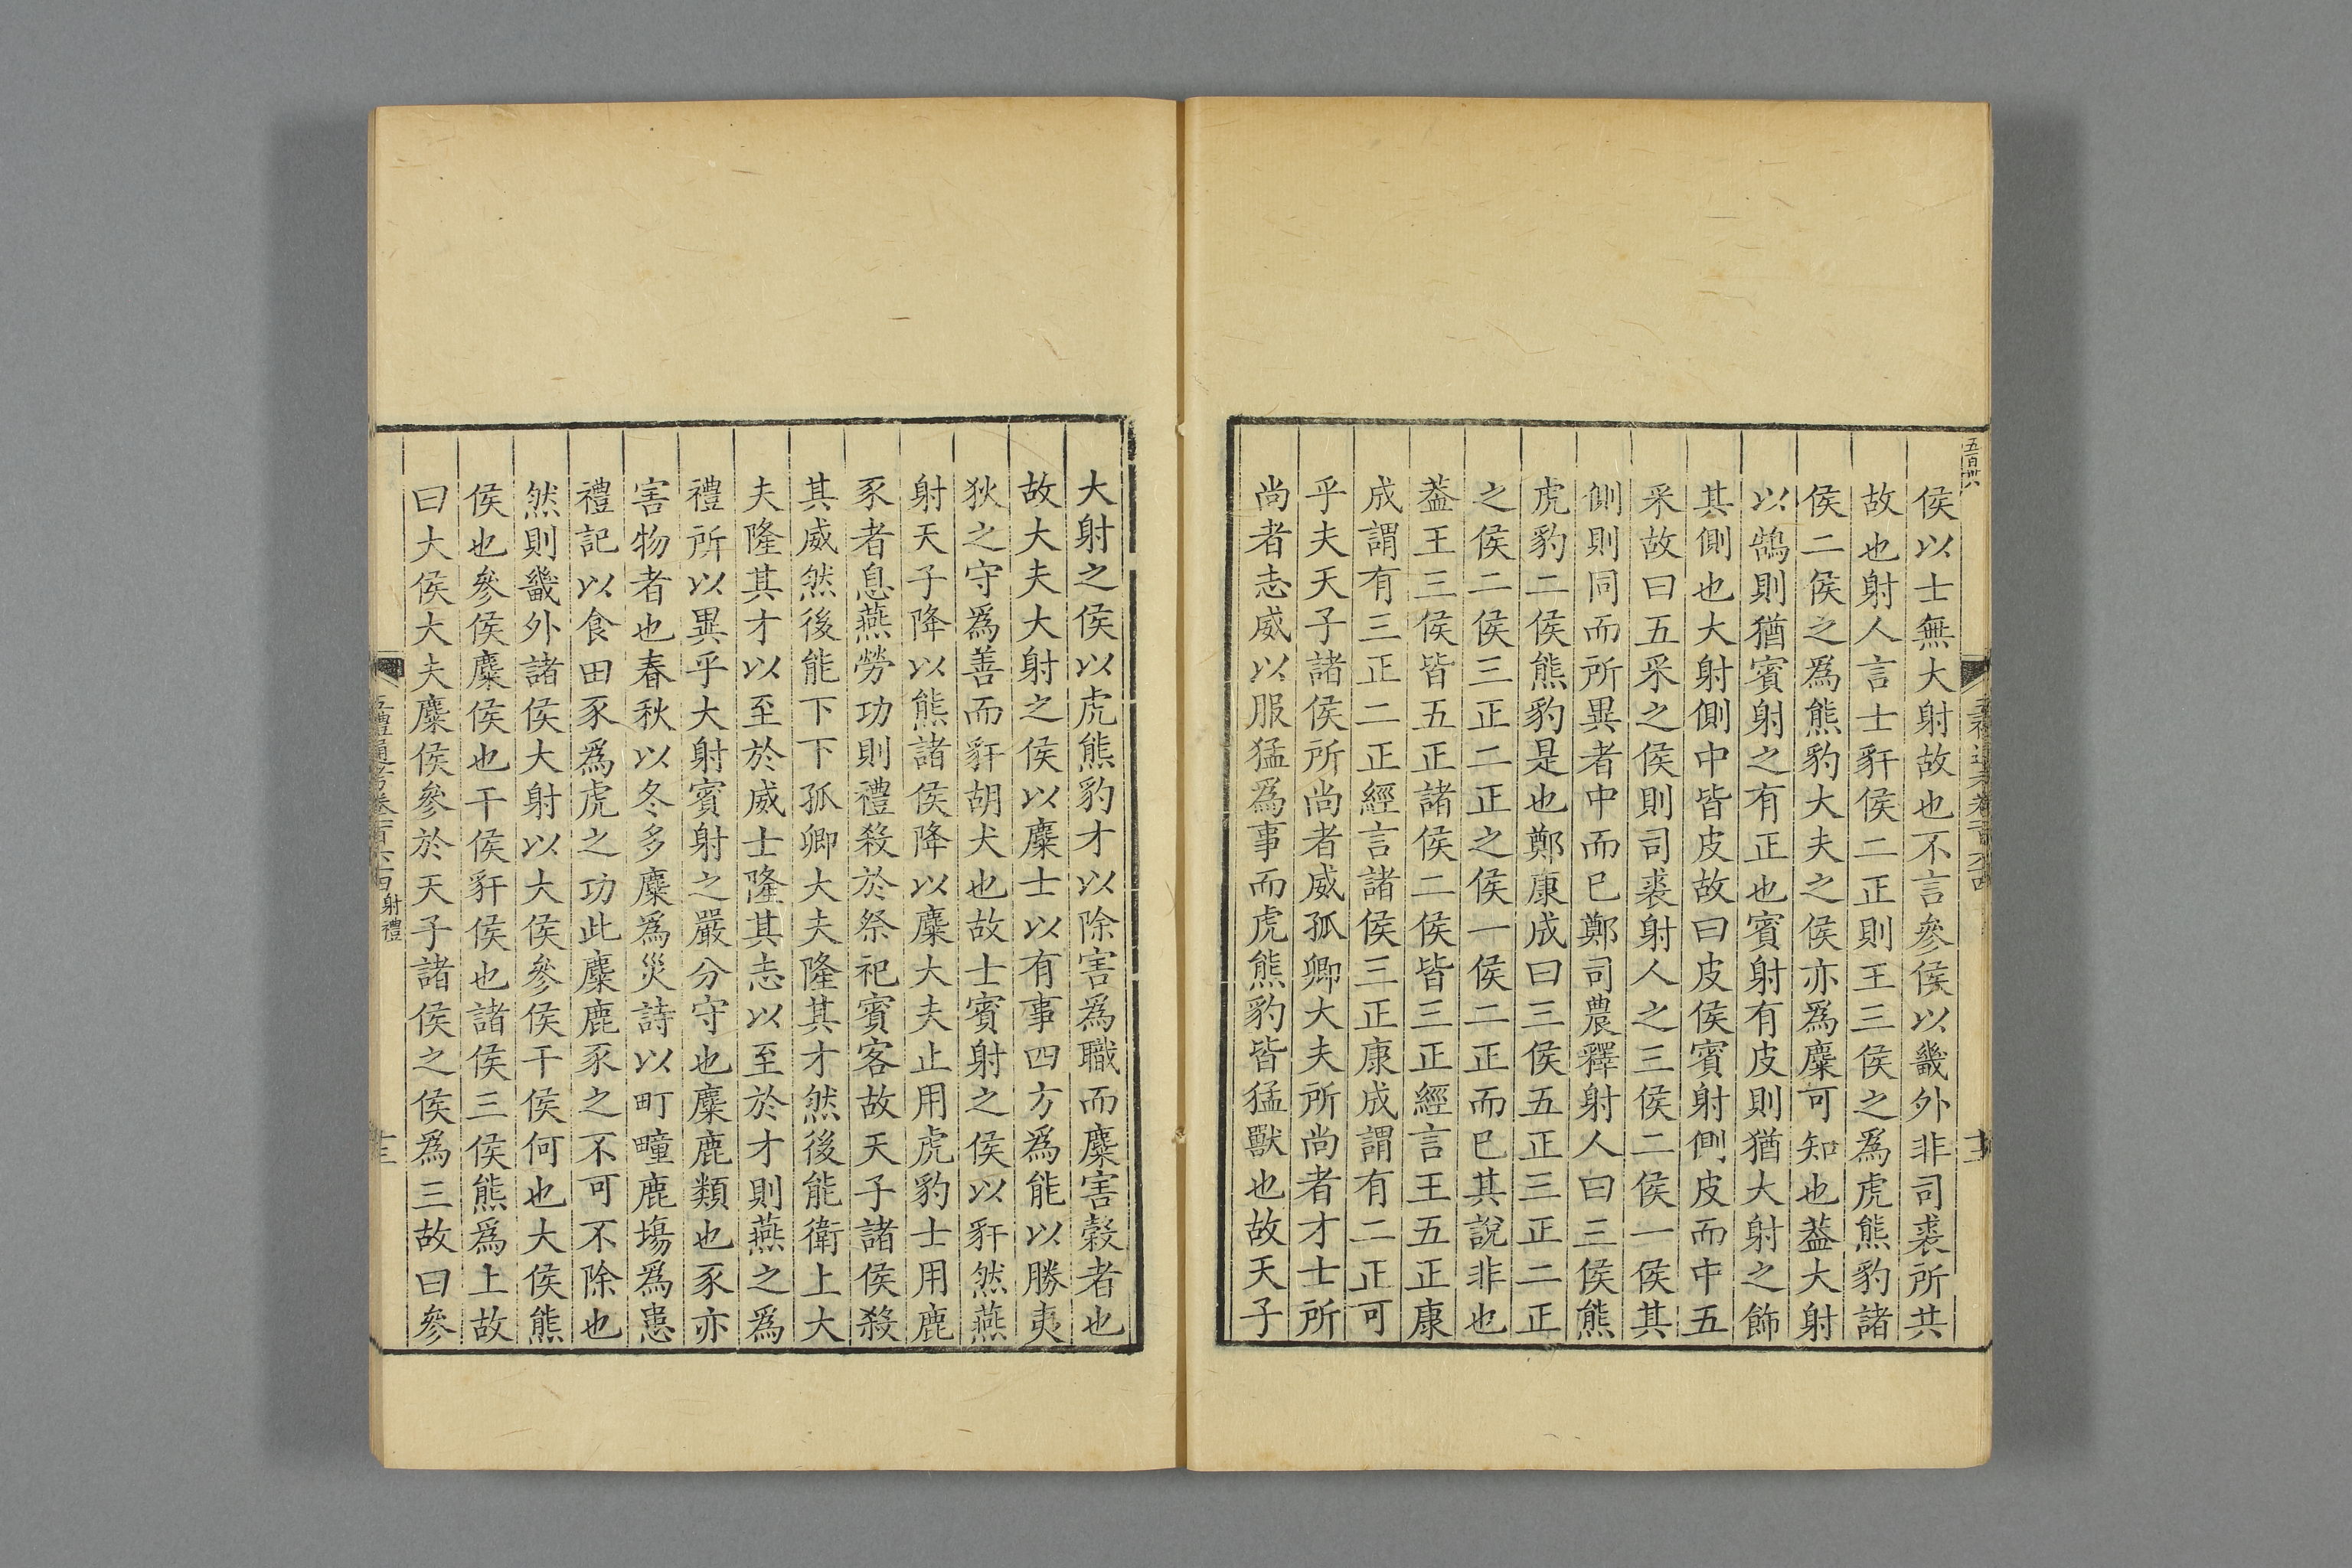 侯以士無大射故也不言參侯以畿外非司裘所共
故也射人言士豻侯二正則王三侯之爲虎熊豹諸
侯二侯之爲熊豹大夫之侯亦爲麋可知也葢大射
以鵠則猶賓射之有正也賓射有皮則猶大射之飾
其側也大射側中皆皮故曰皮侯賓射側皮而中五
采故曰五采之侯則司裘射人之三侯二侯一侯其
側則同而所異者中而已鄭司農釋射人曰三侯熊
虎豹二侯熊豹是也鄭康成曰三侯五正三正二正
之侯二侯三正二正之侯一侯二正而已其說非也
葢王三侯皆五正諸侯二侯皆三正經言王五正康
成謂有三正二正經言諸侯三正康成謂有二正可
乎夫天子諸侯所尚者威孤卿大夫所尚者才士所
尚者志威以服猛爲事而虎熊豹皆猛獸也故天子
大射之侯以虎熊豹才以除害爲職而麋害穀者也
故大夫大射之侯以麋士以有事四方爲能以勝夷
狄之守爲善而豻胡犬也故士賓射之侯以豻然燕
射天子降以熊諸侯降以麋大夫止用虎豹士用鹿
豕者息燕勞功則禮殺於祭祀賓客故天子諸侯殺
其威然後能下下孤卿大夫隆其才然後能衛上大
夫隆其才以至於威士隆其志以至於才則燕之爲
禮所以異乎大射賓射之嚴分守也麋鹿類也豕亦
害物者也春秋以冬多麋爲災詩以町疃鹿場爲患
禮記以食田豕爲虎之功此麋鹿豕之不可不除也
然則畿外諸侯大射以大侯參侯干侯何也大侯熊
侯也參侯麋侯也干侯豻侯也諸侯三侯熊爲上故
曰大侯大夫麋侯參於天子諸侯之侯爲三故曰參
射禮